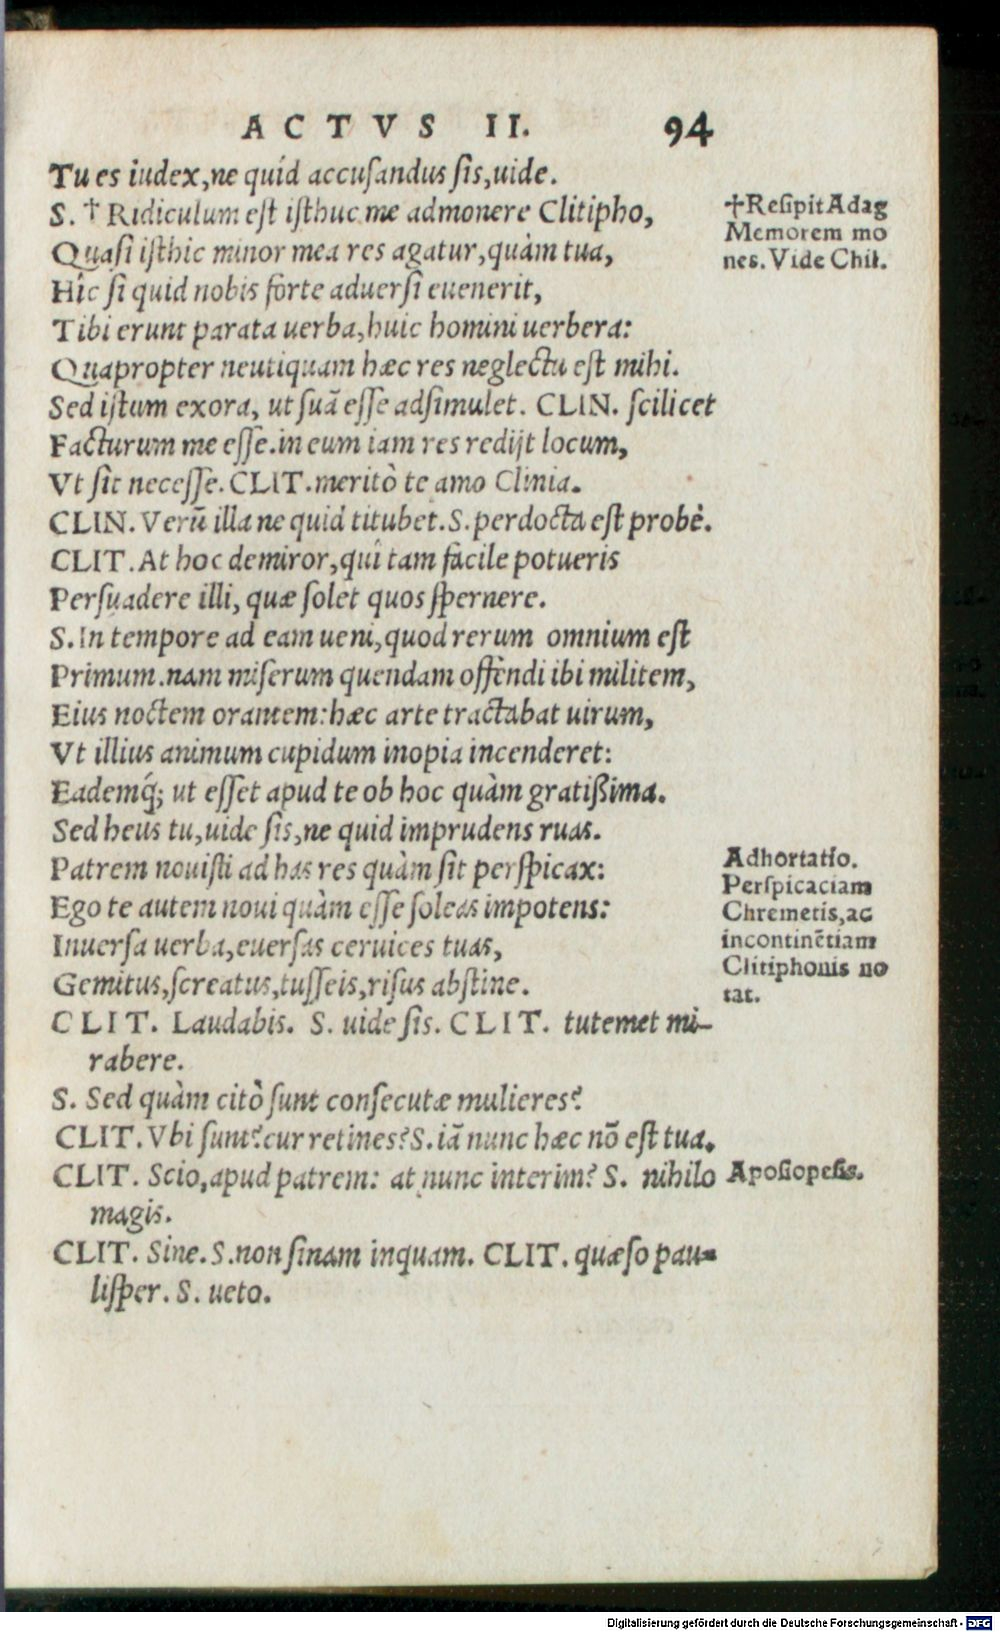 ACTVS II. 94
Tu es iudex, ne quid accuſandus ſis, uide.
S. † Ridiculum eſt iſthuc me admonere Clitipho,
Quaſi iſthic minor mea res agatur, quàm tua,
Hîc ſi quid nobis forte aduerſi euenerit,
Tibi erunt parata uerba, huic homini uerbera:
Quapropter neutiquam hæc res neglecta eſt mihi.
Sed iſtam exora, ut ſuā eſſe adſimulet. CLIN. ſcilicet
Facturum me eſſe. in eum iam res redijt locum,
Vt ſit neceſſe. CLIT. meritò te amo Clinia.
CLIN. Verū illa ne quid titubet. S. perdocta eſt probè.
CLIT. At hoc demiror, quî tam facile potueris
Perſuadere illi, quæ ſolet quos ſpernere.
S. In tempore ad eam ueni, quod rerum omnium eſt
Primum. nam miſerum quendam offendi ibi militem,
Eius noctem orantem: hæc arte tractabat uirum,
Vt illius animum cupidum inopia incenderet:
Eademq́; ut eſſet apud te ob hoc quàm gratißima.
Sed heus tu, uide ſis, ne quid imprudens ruas.
Patrem nouiſti ad has res quàm ſit perſpicax:
Ego te autem noui quàm eſſe ſoleas impotens:
Inuerſa uerba, euerſas ceruices tuas,
Gemitus, ſcreatus, tuſſeis, riſus abſtine.
CLIT. Laudabis. S. uide ſis. CLIT. tutemet mi-
rabere.
S. Sed quàm citò ſunt conſecutæ mulieres?
CLIT. Vbi ſunt? cur retines? S. iā nunc hæc nō eſt tua.
CLIT. Scio, apud patrem: at nunc interim? S. nihilo
magis.
CLIT. Sine. S. non ſinam inquam. CLIT. quæſo pau-
liſper. S. ueto.
†Reſipit Adag
Memorem mo
nes. Vide Chil.
Adhortatio.
Perſpicaciam
Chremetis, ac
incontinētiam
Clitiphonis no
tat.
Apoſiopeſis.
Digitalisierung gefördert durch die Deutsche Forschungsgemeinschaft - DFG